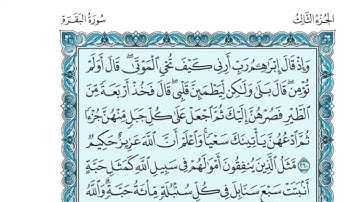 الجزء الثالث
سورة البقرة
وَإِذْ قَالَ إِبْرَٰهِـۧمُ رَبِّ أَرِنِى كَيْفَ تُحْىِ ٱلْمَوْتَىٰ ۖ قَالَ أَوَلَمْ
تُؤْمِن ۖ قَالَ بَلَىٰ وَلَٰكِن لِّيَطْمَئِنَّ قَلْبِى ۖ قَالَ فَخُذْ أَرْبَعَةً مِّنَ
ٱلطَّيْرِ فَصُرْهُنَّ إِلَيْكَ ثُمَّ ٱجْعَلْ عَلَىٰ كُلِّ جَبَلٍ مِّنْهُنَّ جُزْءًا
ثُمَّ ٱدْعُهُنَّ يَأْتِينَكَ سَعْيًا ۚ وَٱعْلَمْ أَنَّ ٱللَّهَ عَزِيزٌ حَكِيمٌ
٢٦٠ مَّثَلُ ٱلَّذِينَ يُنفِقُونَ أَمْوَٰلَهُمْ فِى سَبِيلِ ٱللَّهِ كَمَثَلِ حَبَّةٍ
أَنۢبَتَتْ سَبْعَ سَنَابِلَ فِى كُلِّ سُنۢبُلَةٍ مِّا۟ئَةُ حَبَّةٍ ۗ وَٱللَّهُ